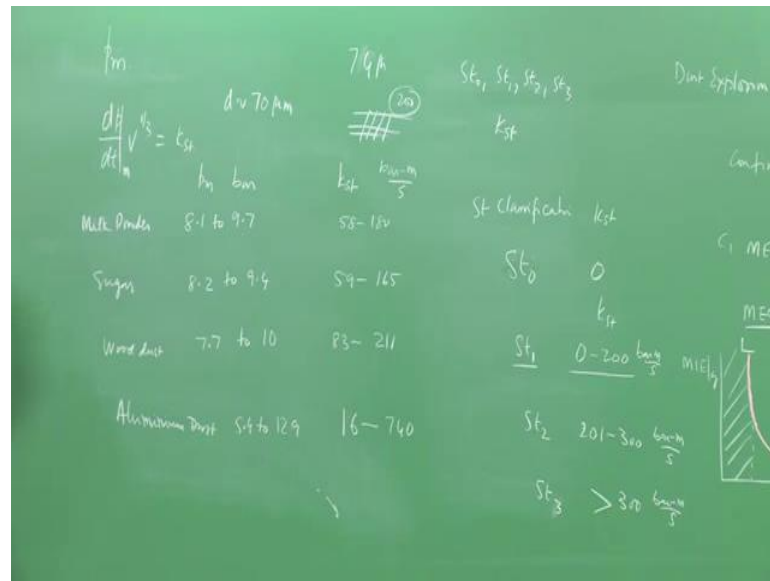 Pm
74μ
d ~ 70 μm
200
dP/dt|m V^1/3 = kst
Pm bar
kst bar-m/s
Milk Powder 8.1 to 9.7 58-180
Sugar 8.2 to 9.4 59-165
Wood dust 7.7 to 10 83-211
Aluminium Dust 5.4 to 12.9 16-740
St0, St1, St2, St3
kst
St Classification kst
St0 0
kst
St1 0-200 bar-m/s
St2 201-300 bar-m/s
St3 >300 bar-m/s
Dust Explosion
C, ME
MIE